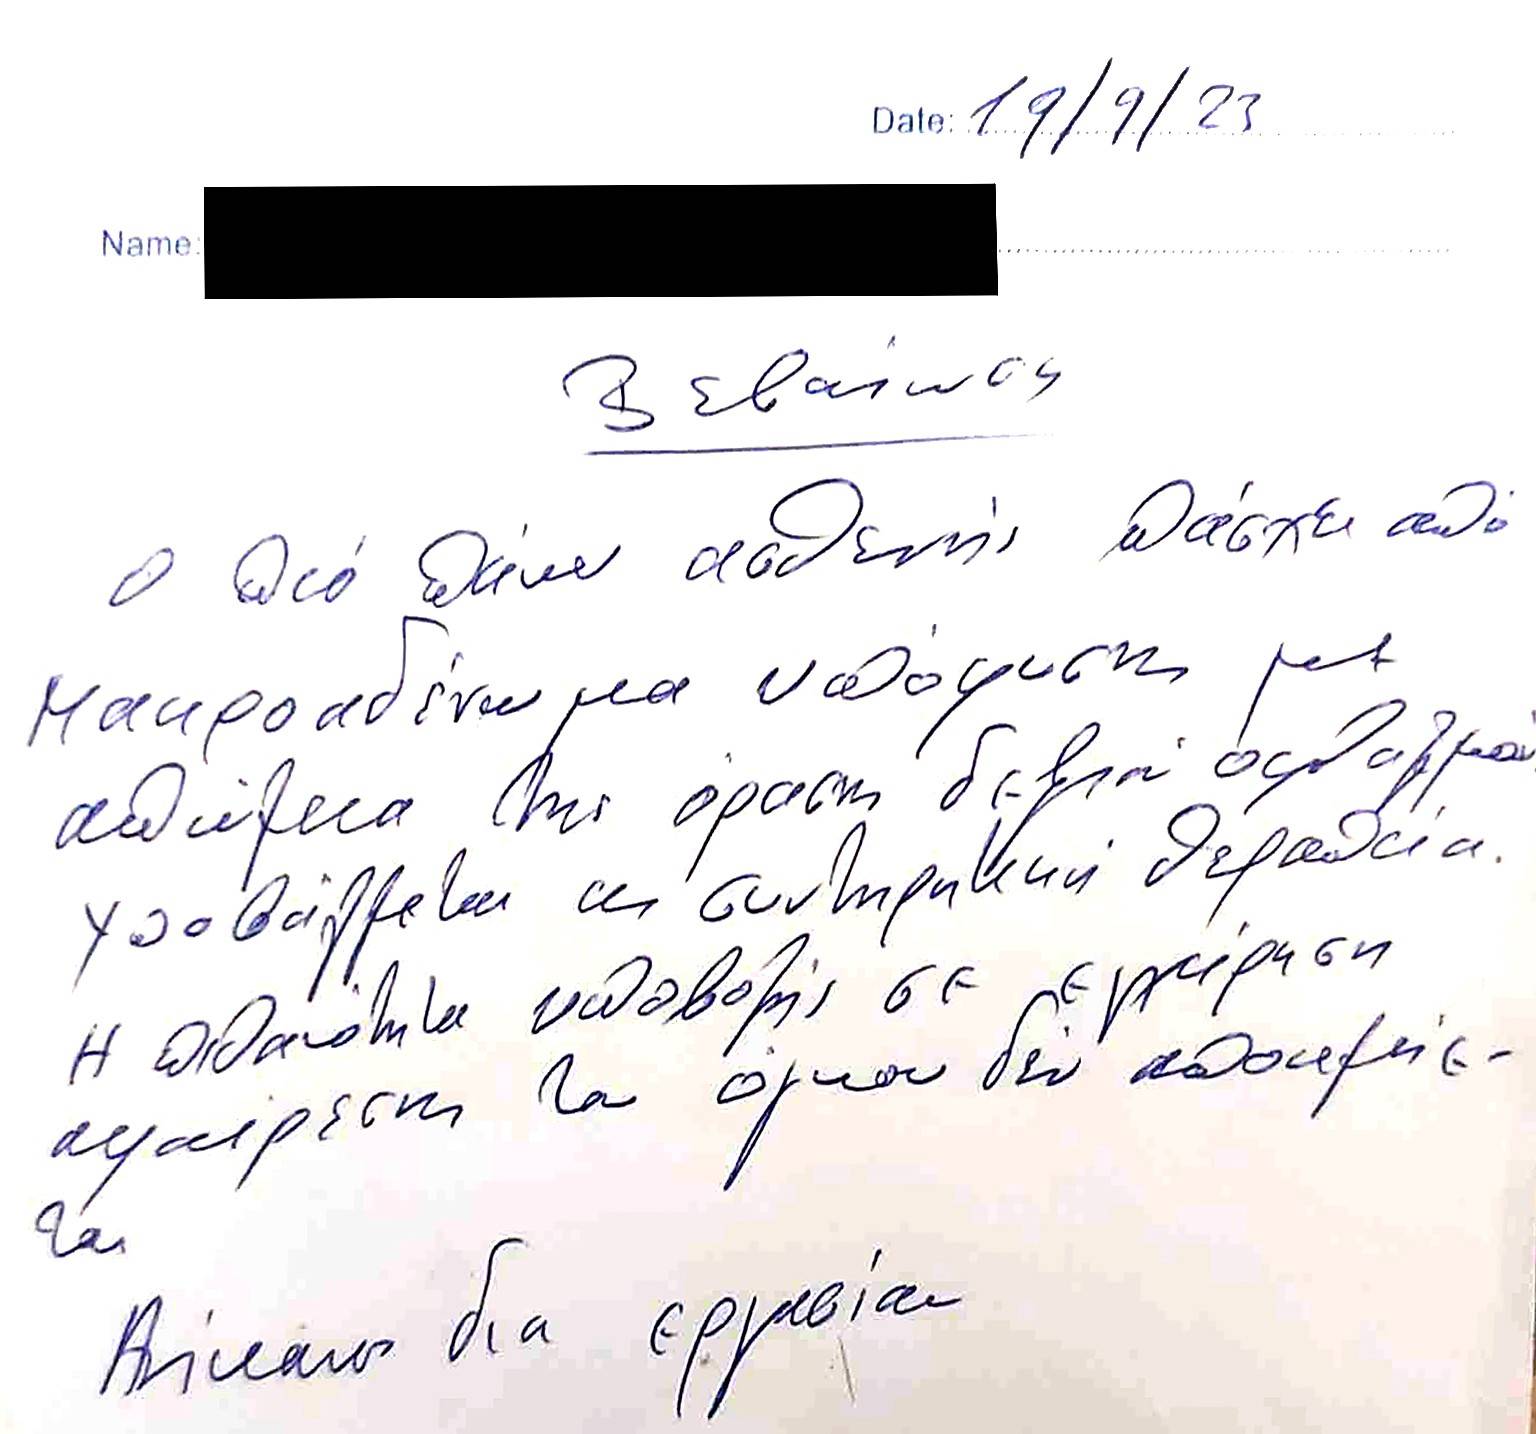 Date: 19/9/23
Name:
Βεβαίωση
Ο πιό πάνω ασθενής πάσχει από
Μακροαδένωμα υπόφυσης με
απώλεια της όρασης δεξιού οφθαλμού
Υποβάλλεται σε συντηρητική θεραπεία.
Η πιθανότητα υποβολής σε εγχείρηση
αφαίρεσης του όγκου δέν αποκλείε-
ται
Ανίκανος δια εργασίαν